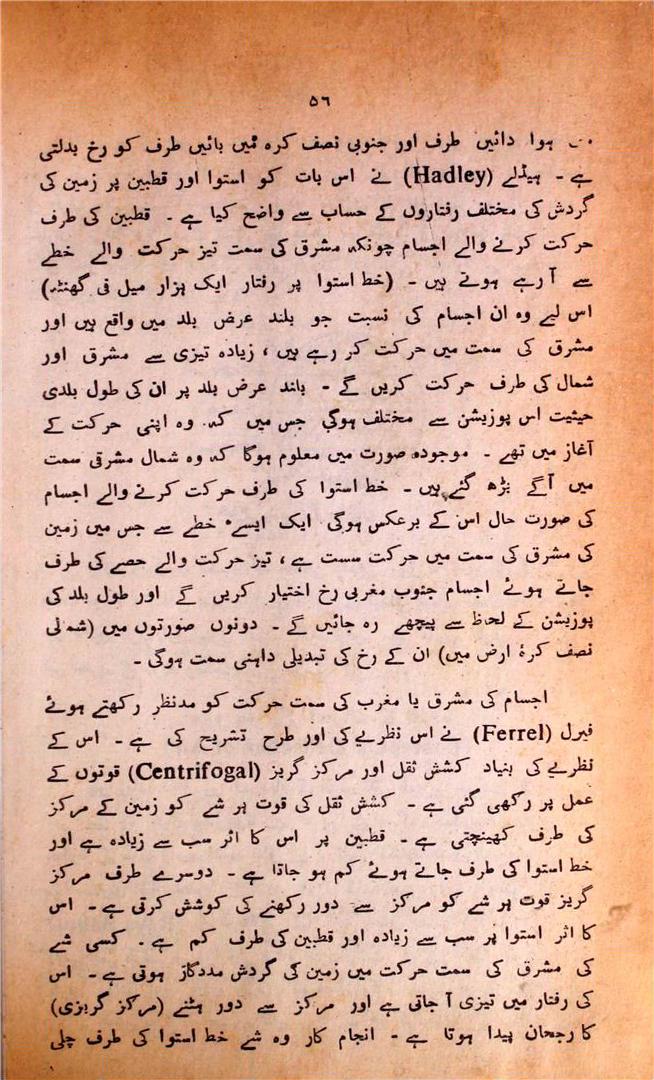 ۵٦
ہوا دائیں طرف اور جنوبی نصف کرہ میں بائیں طرف کو رخ بدلتی
ہے - ہیڈلے (Hadley) نے اس بات کو استوا اور قطبین پر زمین کی
گردش کی مختلف رفتاروں کے حساب سے واضح کیا ہے - قطبین کی طرف
حرکت کرنے والے اجسام چونکہ مشرق کی سمت تیز حرکت والے خطے
سے آ رہے ہوتے ہیں - (خط استوا پر رفتار ایک ہزار میل فی گھنٹہ)
اس لیے وہ ان اجسام کی نسبت جو بلند عرض بلد میں واقع ہیں اور
مشرق کی سمت میں حرکت کر رہے ہیں ، زیادہ تیزی سے مشرق اور
شمال کی طرف حرکت کریں گے - بلند عرض بلد پر ان کی طول بلدی
حیثیت اس پوزیشن سے مختلف ہوگی جس میں کہ وہ اپنی حرکت کے
آغاز میں تھے - موجودہ صورت میں معلوم ہوگا کہ وہ شمال مشرقی سمت
میں آگے بڑھ گئے ہیں - خط استوا کی طرف حرکت کرنے والے اجسام
کی صورت حال اس کے برعکس ہوگی ایک ایسے خطے سے جس میں زمین
کی مشرق کی سمت میں حرکت سست ہے ، تیز حرکت والے حصے کی طرف
جاتے ہوئے اجسام جنوب مغربی رخ اختیار کریں گے اور طول بلد کی
پوزیشن کے لحاظ سے پیچھے رہ جائیں گے - دونوں صورتوں میں (شمالی
نصف کرۂ ارض میں) ان کے رخ کی تبدیلی داہنی سمت ہوگی -
اجسام کی مشرق یا مغرب کی سمت حرکت کو مدنظر رکھتے ہوئے
فیرل (Ferrel) نے اس نظریے کی اور طرح تشریح کی ہے - اس کے
نظریے کی بنیاد کشش ثقل اور مرکز گریز (Centrifogal) قوتوں کے
عمل پر رکھی گئی ہے - کشش ثقل کی قوت ہر شے کو زمین کے مرکز
کی طرف کھینچتی ہے - قطبین پر اس کا اثر سب سے زیادہ ہے اور
خط استوا کی طرف جاتے ہوئے کم ہو جاتا ہے - دوسرے طرف مرکز
گریز قوت ہر شے کو مرکز سے دور رکھنے کی کوشش کرتی ہے - اس
کا اثر استوا پر سب سے زیادہ اور قطبین کی طرف کم ہے - کسی شے
کی مشرق کی سمت حرکت میں زمین کی گردش مددگار ہوتی ہے - اس
کی رفتار میں تیزی آ جاتی ہے اور مرکز سے دور ہٹنے (مرکز گریزی)
کا رجحان پیدا ہوتا ہے - انجام کار وہ شے خط استوا کی طرف چلی